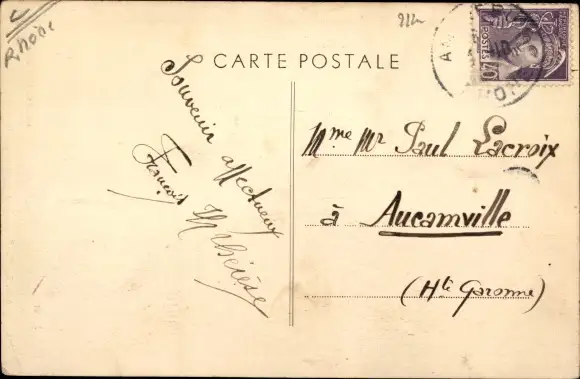 Rhône
CARTE POSTALE
POSTES
40
Souvenir affectueux
François
Mthérèse
Mme Mr Paul Lacroix
à Aucamville
(Hte Garonne)